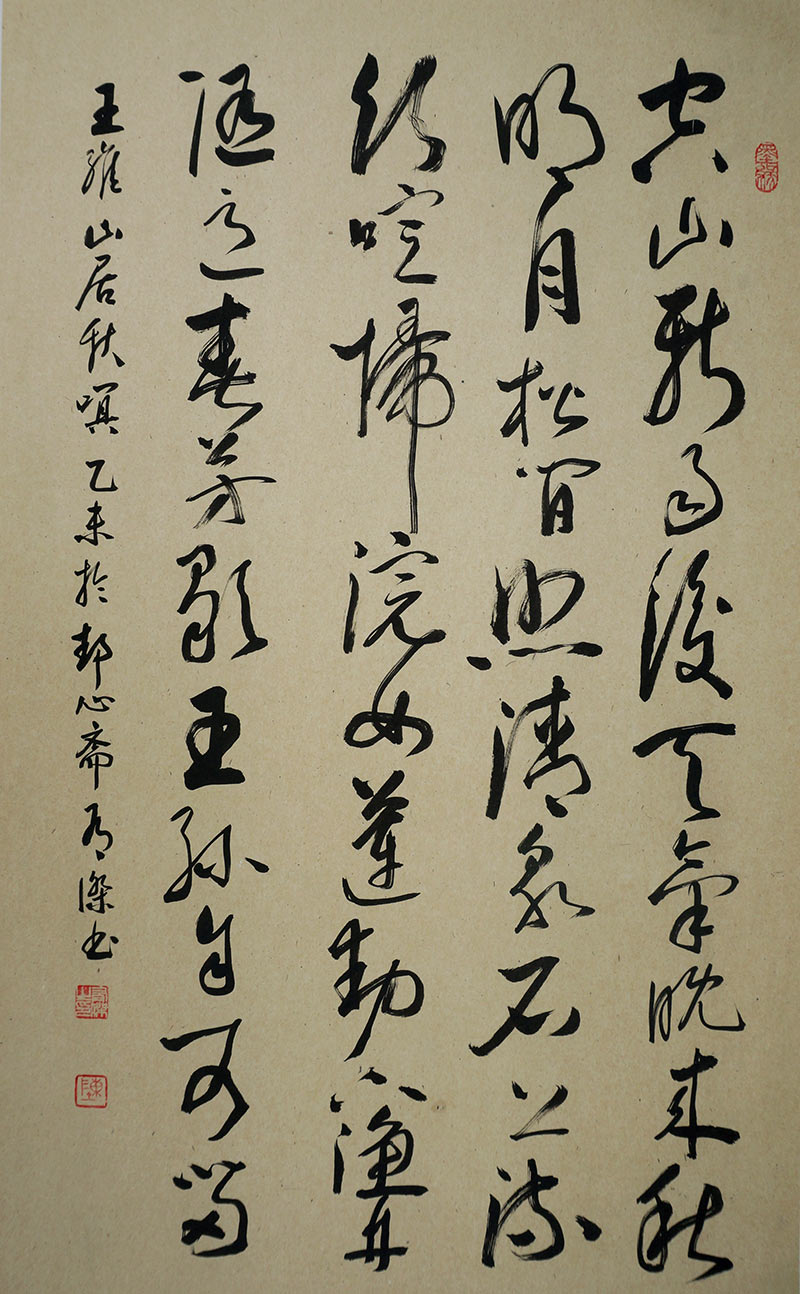 空山新雨後天氣晚來秋
明月松間照清泉石上流
竹喧歸浣女蓮動下漁舟
隨意春芳歇王孫自可留
王維山居秋暝乙未於心斋书
陳